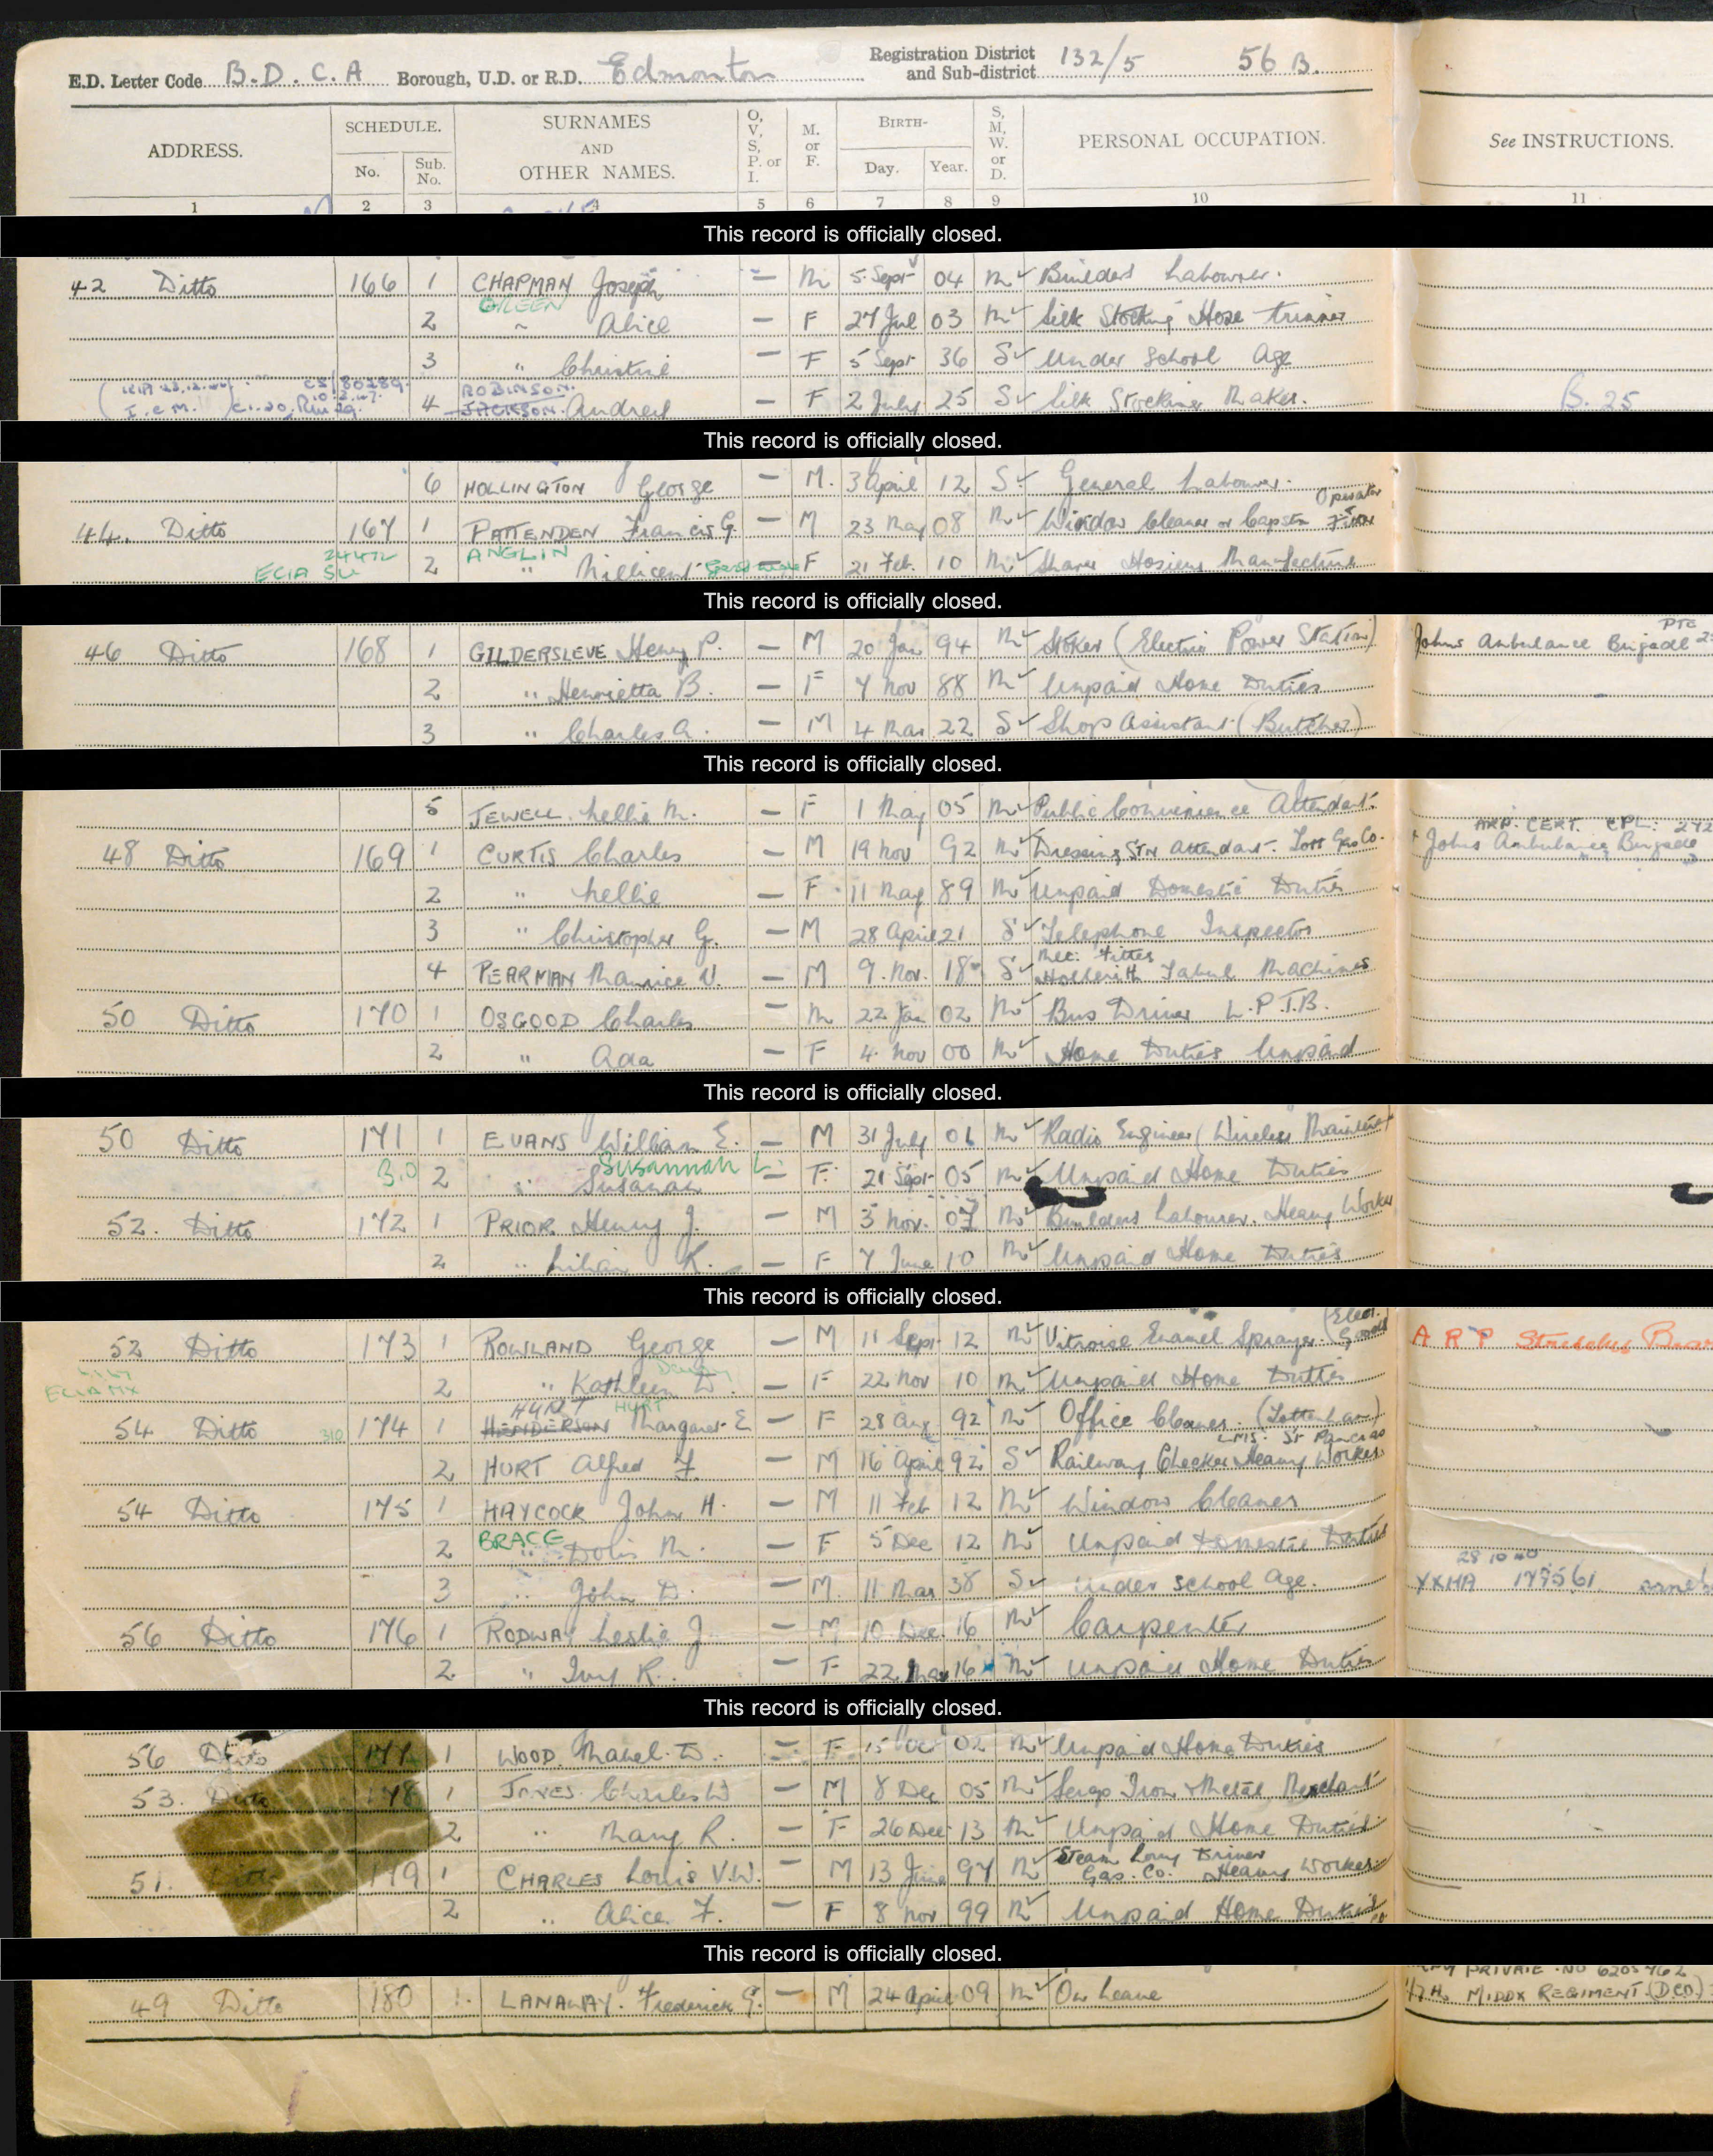 E.D. Letter Code B.D.C.A Borough, U.D. or R.D. Edmonton Registration District and Sub-district 132/5 56 B.
ADDRESS. SCHEDULE. No. Sub. No. SURNAMES AND OTHER NAMES. O, V, S, P. or I. M. or F. BIRTH- Day. Year. S, M, W. or D. PERSONAL OCCUPATION. See INSTRUCTIONS.
1 2 3 4 5 6 7 8 9 10 11
This record is officially closed.
42 Ditto 166 1 CHAPMAN Joseph — M 5 Sept 04 M Builders Labourer.
EILEEN
2 " Alice — F 27 Jul 03 M Silk Stocking Hose trimmer
3 " Christine — F 5 Sept 36 S Under School Age
ROBINSON.
4 JACKSON. Audrey — F 2 July 25 S Silk Stocking Maker. B. 25
This record is officially closed.
6 HOLLINGTON George — M. 3 April 12 S General Labourer.
Operator
44. Ditto 167 1 PATTENDEN Francis G. — M 23 May 08 M Window Cleaner or Capstan
ANGLIN
24472 ECIA SU 2 " Millicent — F 21 Feb. 10 M Hosiery Manufacture
This record is officially closed.
PTE
46 Ditto 168 1 GILDERSLEVE Henry P. — M 20 Jan 94 M Stoker (Electric Power Station) Johns Ambulance Brigade
2 " Henrietta B. — F 7 Nov 88 M Unpaid Home Duties
3 " Charles A. — M 4 Mar 22 S Shop Assistant (Butcher)
This record is officially closed.
5 JEWELL. Nellie M. — F 1 May 05 M Public Convenience Attendant.
ARP. CERT. CPL: 242
48 Ditto 169 1 CURTIS Charles — M 19 Nov 92 M Dressing Stn Attendant. Tott Gas Co. Johns Ambulance Brigade
2 " Nellie — F 11 May 89 M Unpaid Domestic Duties
3 " Christopher G. — M 28 April 21 S Telephone Inspector
Mec: Fitter
4 PEARMAN Maurice V. — M 9. Nov. 18 S Hollerith Tabul Machines
50 Ditto 170 1 OSGOOD Charles — M 22 Jan 02 M Bus Driver L.P.T.B.
2 " Ada — F 4 Nov 00 M Home Duties Unpaid
This record is officially closed.
50 Ditto 171 1 EVANS William E. — M 31 July 01 M Radio Engineer (Wireless
Susannah L.
B.O 2 " Susanah — F. 21 Sept 05 M Unpaid Home Duties
52. Ditto 172 1 PRIOR Henry J. — M 3 Nov. 07 M Builders Labourer. Heavy Worker
2 " Lilian K. — F 7 June 10 M Unpaid Home Duties
This record is officially closed.
(Elec.
52 Ditto 173 1 ROWLAND George — M 11 Sept 12 M Vitroise Enamel Sprayer. Goods A R P Stretcher Bear
ECIA MX 2 " Kathleen D. — F 22 Nov 10 M Unpaid Home Duties
HURT HURT
54 Ditto 310 174 1 HENDERSON Margaret E — F 28 Aug 92 M Office Cleaner. (Tottenham)
LMS. St Pancras
2 HURT Alfred F. — M 16 April 92 S Railway Checker Heavy Worker
54 Ditto 175 1 HAYCOCK John H. — M 11 Feb 12 M Window Cleaner
BRACE
2 " Doris M. — F 5 Dec 12 M Unpaid Domestic Duties
28 10 40
3 " John D. — M 11 Mar 38 S Under School Age. YXHA 177561
56 Ditto 176 1 RODWAY Leslie J. — M 10 Dec 16 M Carpenter
2 " Ivy R. — F 22 Mar 16 M Unpaid Home Duties
This record is officially closed.
56 Ditto 177 1 WOOD. Mabel. D. — F 15 Oct 02 M Unpaid Home Duties
53. Ditto 178 1 Charles W — M 8 Dec 05 M Scrap Iron & Metal Merchant
2 " Mary R. — F 26 Dec 13 M Unpaid Home Duties
Steam Lorry Driver
51. Ditto 179 1 CHARLES Louis V.W. — M 13 June 97 M Gas. Co. Heavy Worker
2 " Alice F. — F 8 Nov 99 M Unpaid Home Duties
This record is officially closed.
PRIVATE NO 6205762
49 Ditto 180 1. LANAWAY. Frederick G. — M 24 April 09 M On Leave MIDDX REGIMENT. (DCO.)